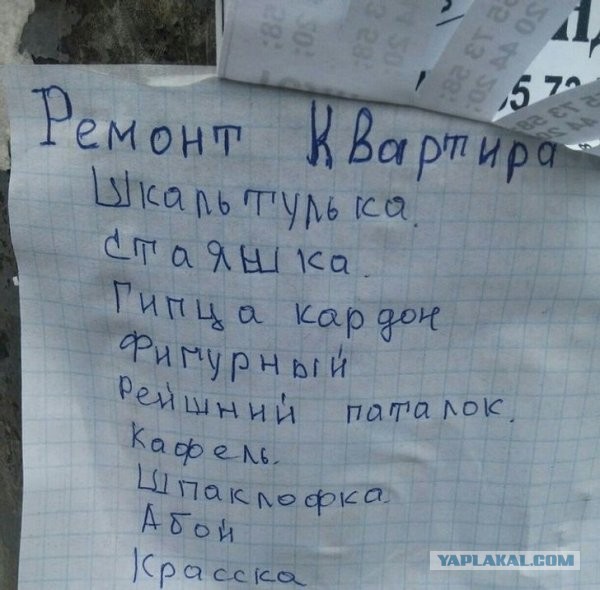 Ремонт Квартира
Шкальтулька.
Стаяшка.
Гипца кардон
Фигурный
Рейшний паталок.
Кафель.
Шпаклофка
Абой
Красска
YAPLAKAL.COM